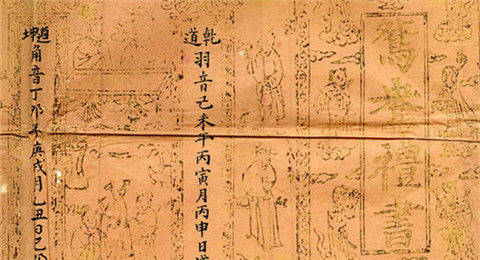 鴛禮書
乾道
羽音己未年丙寅月丙申日
坤道
角音丁卯年庚戌月乙丑日己